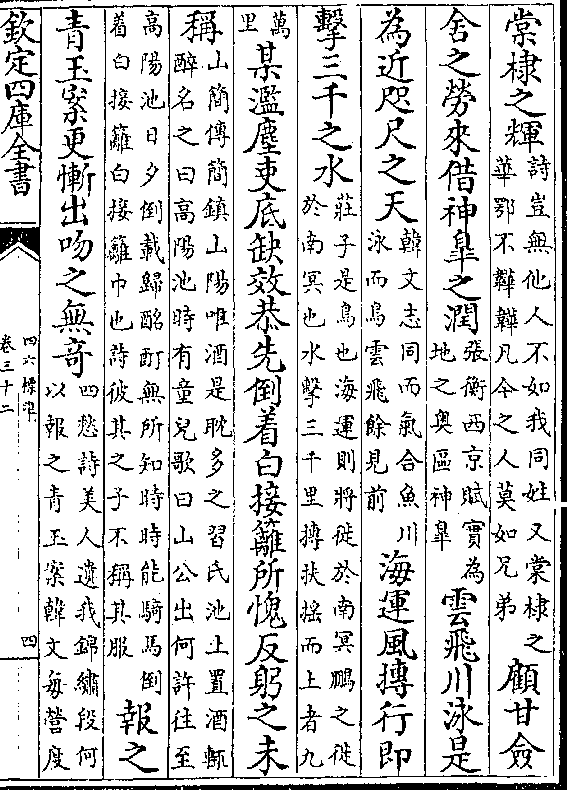 棠棣之輝詩豈無他人不如我同姓又棠棣之華鄂不韡韡凡今之人莫如兄弟顧甘僉
舍之勞來借神臯之潤張衡西京賦實為地之奥區神臯雲飛川泳是
為近咫尺之天韓文志同而氣合魚川泳而鳥雲飛餘見前海運風摶行即
擊三千之水莊子是鳥也海運則將徙於南冥鵬之徙於南冥也水擊三千里摶扶摇而上者九
萬里某濫塵吏底缺效恭先倒着白接籬所愧反躬之未
稱山簡傳簡鎮山陽唯酒是耽多之習氏池上置酒輒醉名之曰高陽池時有童兒歌曰山公出何許往至
高陽池日夕倒載歸酩酊無所知時時能騎馬倒着白接籬白接籬巾也詩彼其之子不稱其服報之
青玉案更慚出吻之無竒四愁詩美人遺我錦繡段何以報之青玉案韓文每營度
欽定四庫全書
四六標準
卷三十二
四